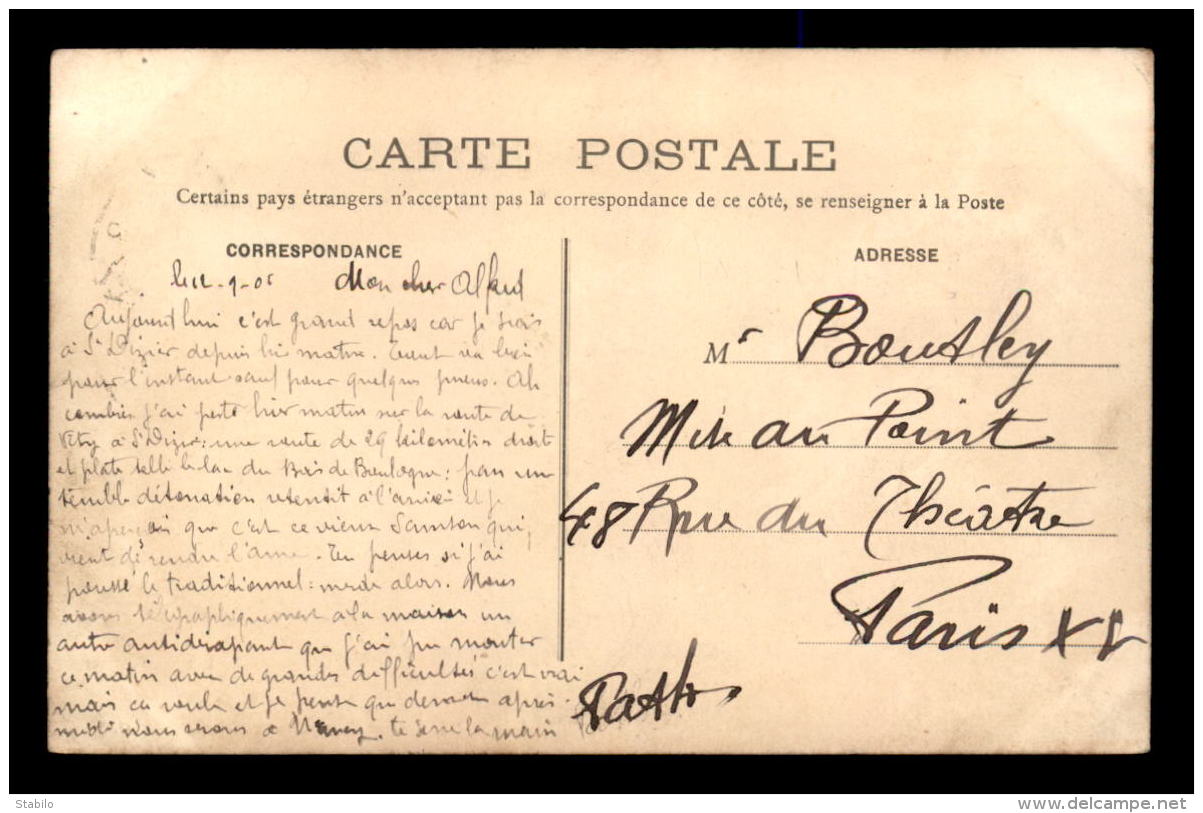 CARTE POSTALE
Certains pays étrangers n'acceptant pas la correspondance de ce côté, se renseigner à la Poste
CORRESPONDANCE
Mon cher Alfred
Aujourd'hui c'est grand repos car je suis
à St Dizier depuis hier matin. Tout va bien
pour l'instant sauf pour quelques pneus. Ah
combien j'ai pesté hier matin sur la route de
Vitry à St Dizier: une route de 29 kilomètres droite
et plate telle le lac du Bois de Boulogne: pan un
terrible détonation retentit à l'arrière et je
m'aperçois que c'est ce vieux Samson qui,
vient de rendre l'âme. Tu penses si j'ai
poussé le traditionnel: merde alors. Nous
avons télégraphiquement à la maison un
autre antidérapant que j'ai pu monter
ce matin avec de grandes difficultés c'est vrai
mais ça roule et je pense que demain après
midi nous serons à Nancy. te serre la main
ADRESSE
Mr Boutley
Mise au Point
48 Rue du Théâtre
Paris XV
Stabilo
www.delcampe.net